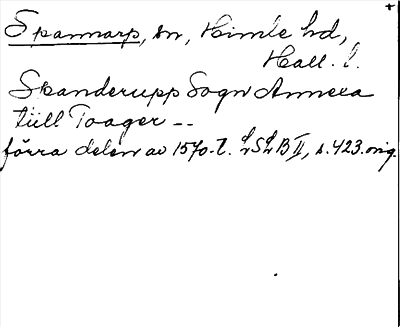 Spannarp, sn, Himle hd,
Hall. l.
Skanderupp Sogn Annexa
tiill Toager --
förra delen av 1570-t. LSLB II, s. 423. orig.